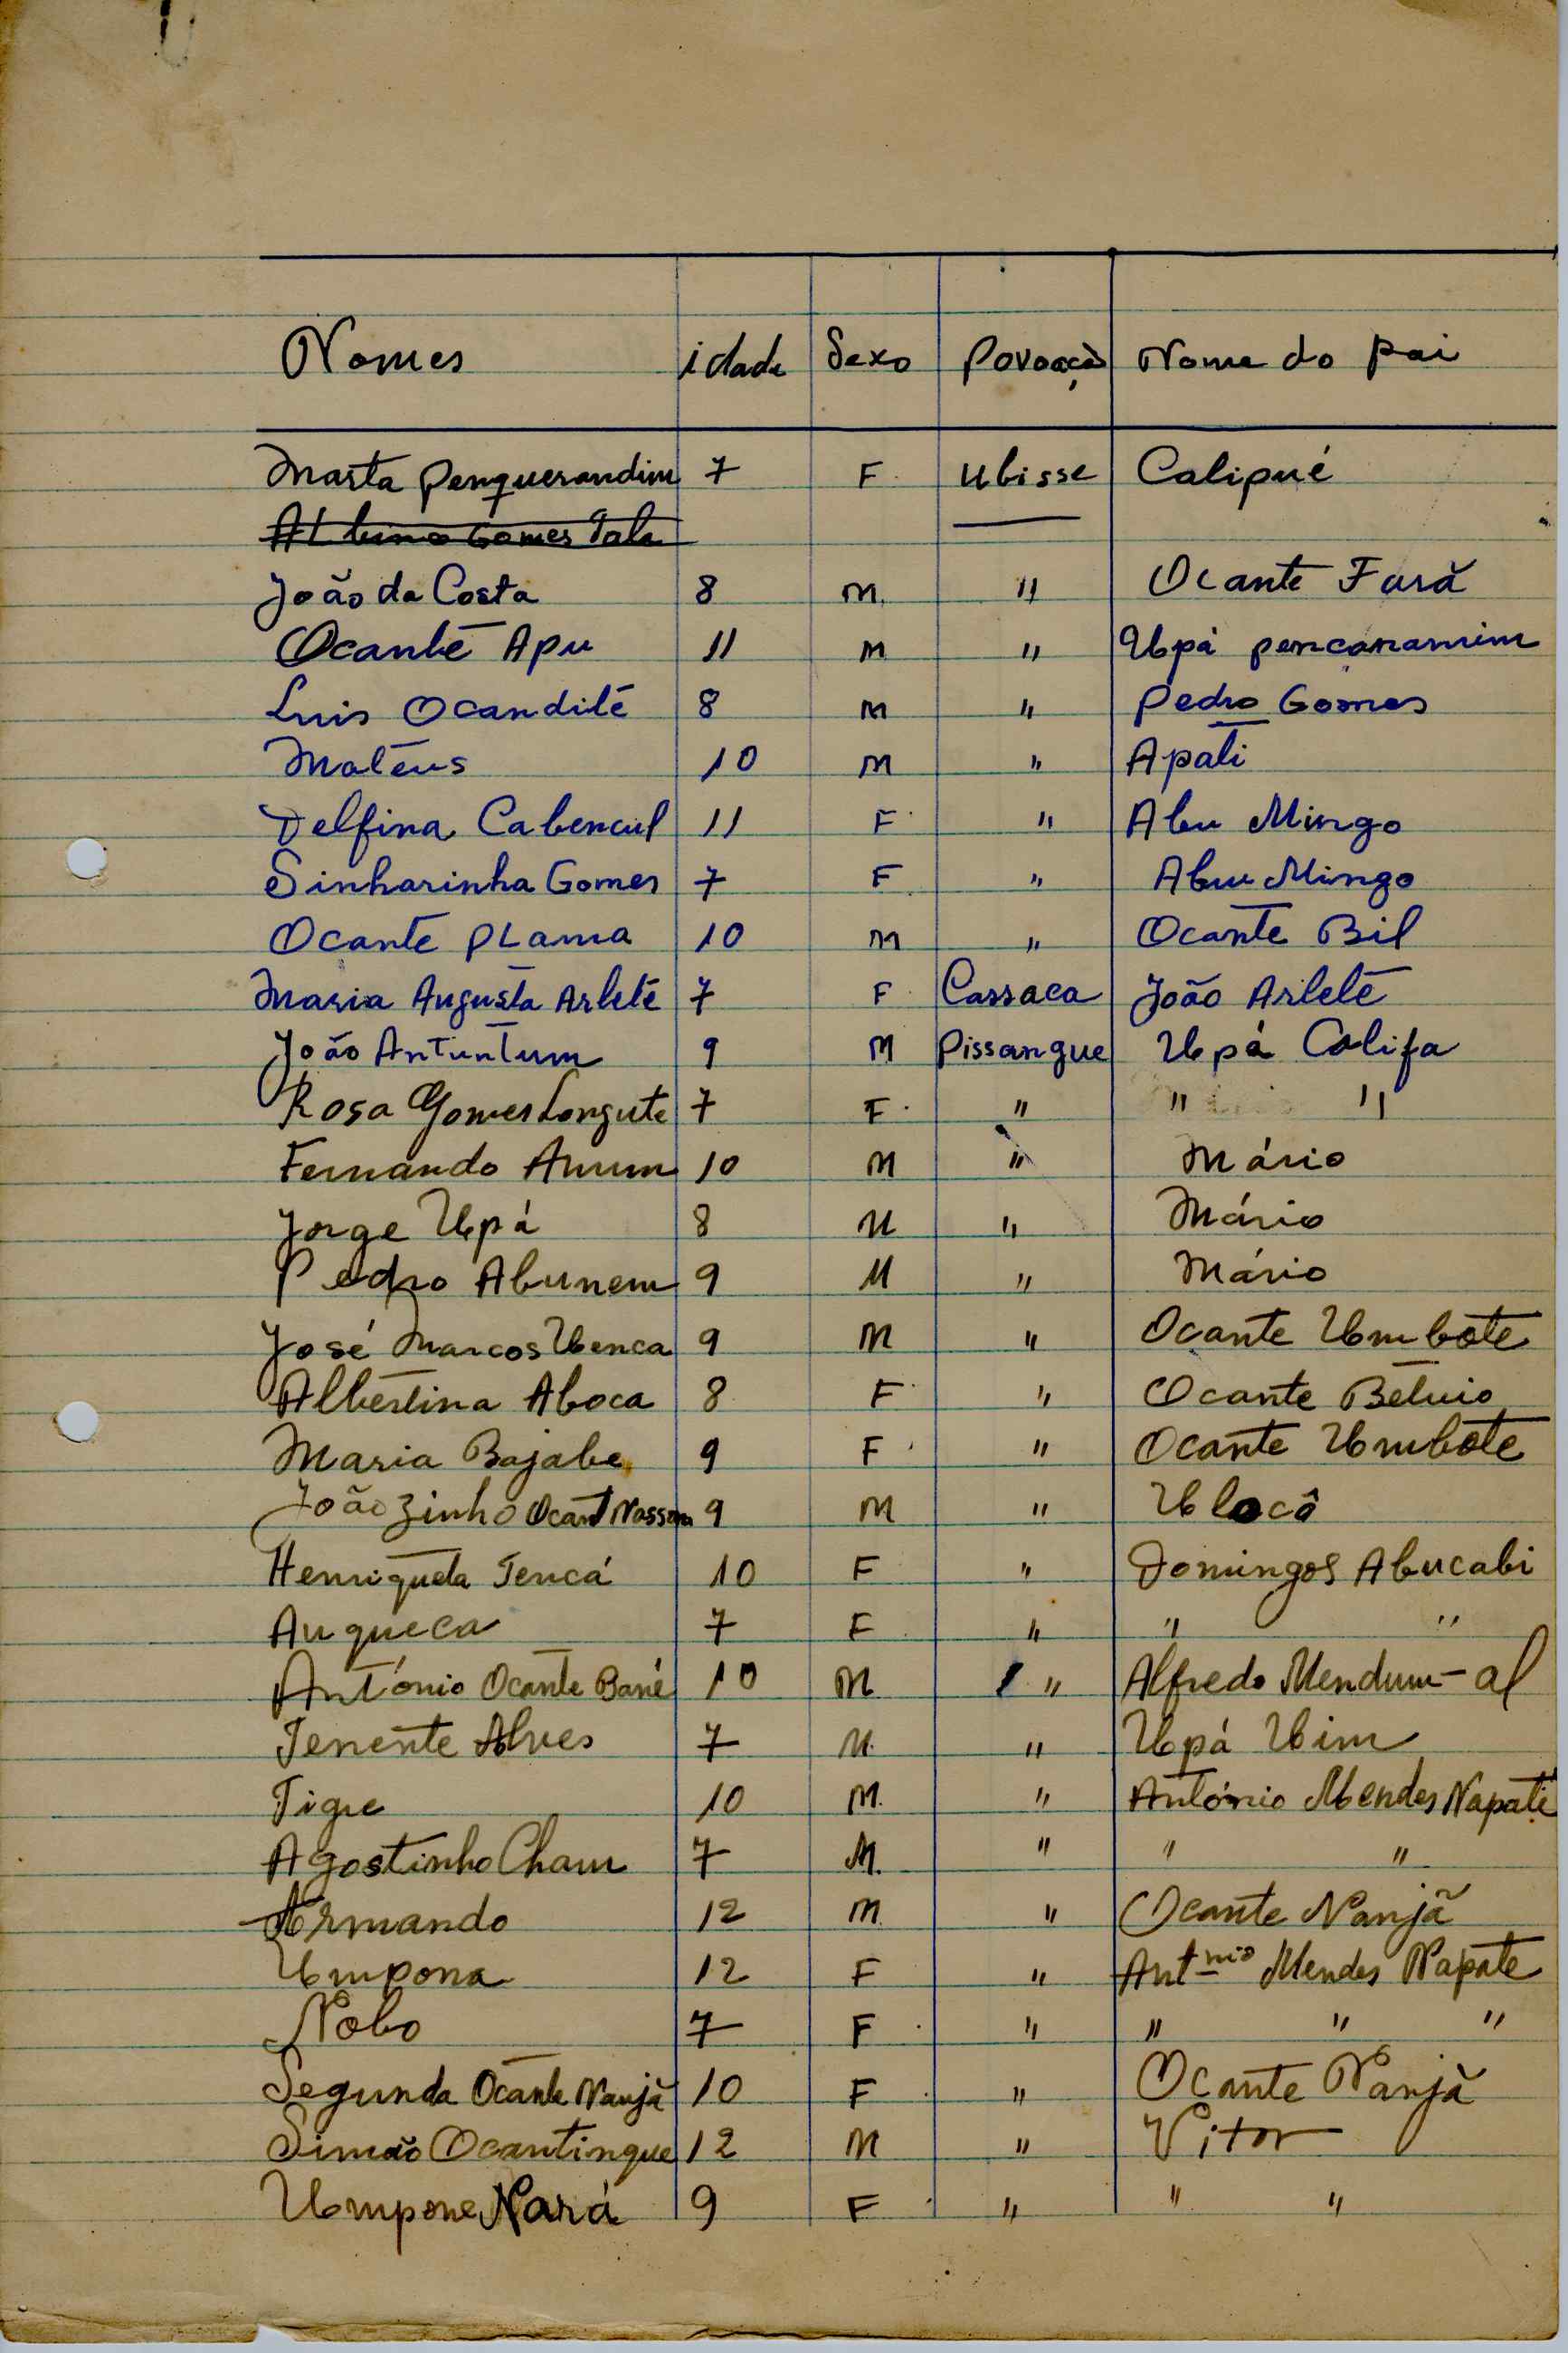 Nomes idade Sexo Povoação Nome do pai
Marta Penquerandim 7 F Ubisse Calipué
Albino Gomes
João da Costa 8 M " Ocante Fará
Ocante Apu 11 M " Upá pencanamim
Luis Ocandité 8 M " Pedro Gomes
Mateus 10 M " Apati
Delfina Cabencul 11 F " Abu Mingo
Sinharinha Gomes 7 F " Abu Mingo
Ocante PLama 10 M " Ocante Bil
Maria Augusta Arleté 7 F Cassaca João Arleté
João Antuntum 9 M Pissangue Upá Califa
Rosa Gomes Longute 7 F " " "
Fernando Anum 10 M " Mário
Jorge Upá 8 M " Mário
Pedro Abunem 9 M " Mário
José Marcos Ubenca 9 M " Ocante Umbote
Albertina Aboca 8 F " Ocante Betuio
Maria Bajabe 9 F " Ocante Umbote
Joãozinho Ocant Nassom 9 M " Ublocô
Henriqueta Tencá 10 F " Domingos Abucabi
Auqueca 7 F " " "
António Ocante Bané 10 M " Alfredo Mendum-al
Tenente Alves 7 M " Upá Uim
Tigre 10 M " António Mendes Napati
Agostinho Cham 7 M " " "
Armando 12 M " Ocante Nanjã
Umpona 12 F " Antnio Mendes Napate
Nobo 7 F " " " "
Segunda Ocante Nanjã 10 F " Ocante Nanjã
Simão Ocantingue 12 M " Vitor
Umpone Nará 9 F " " "